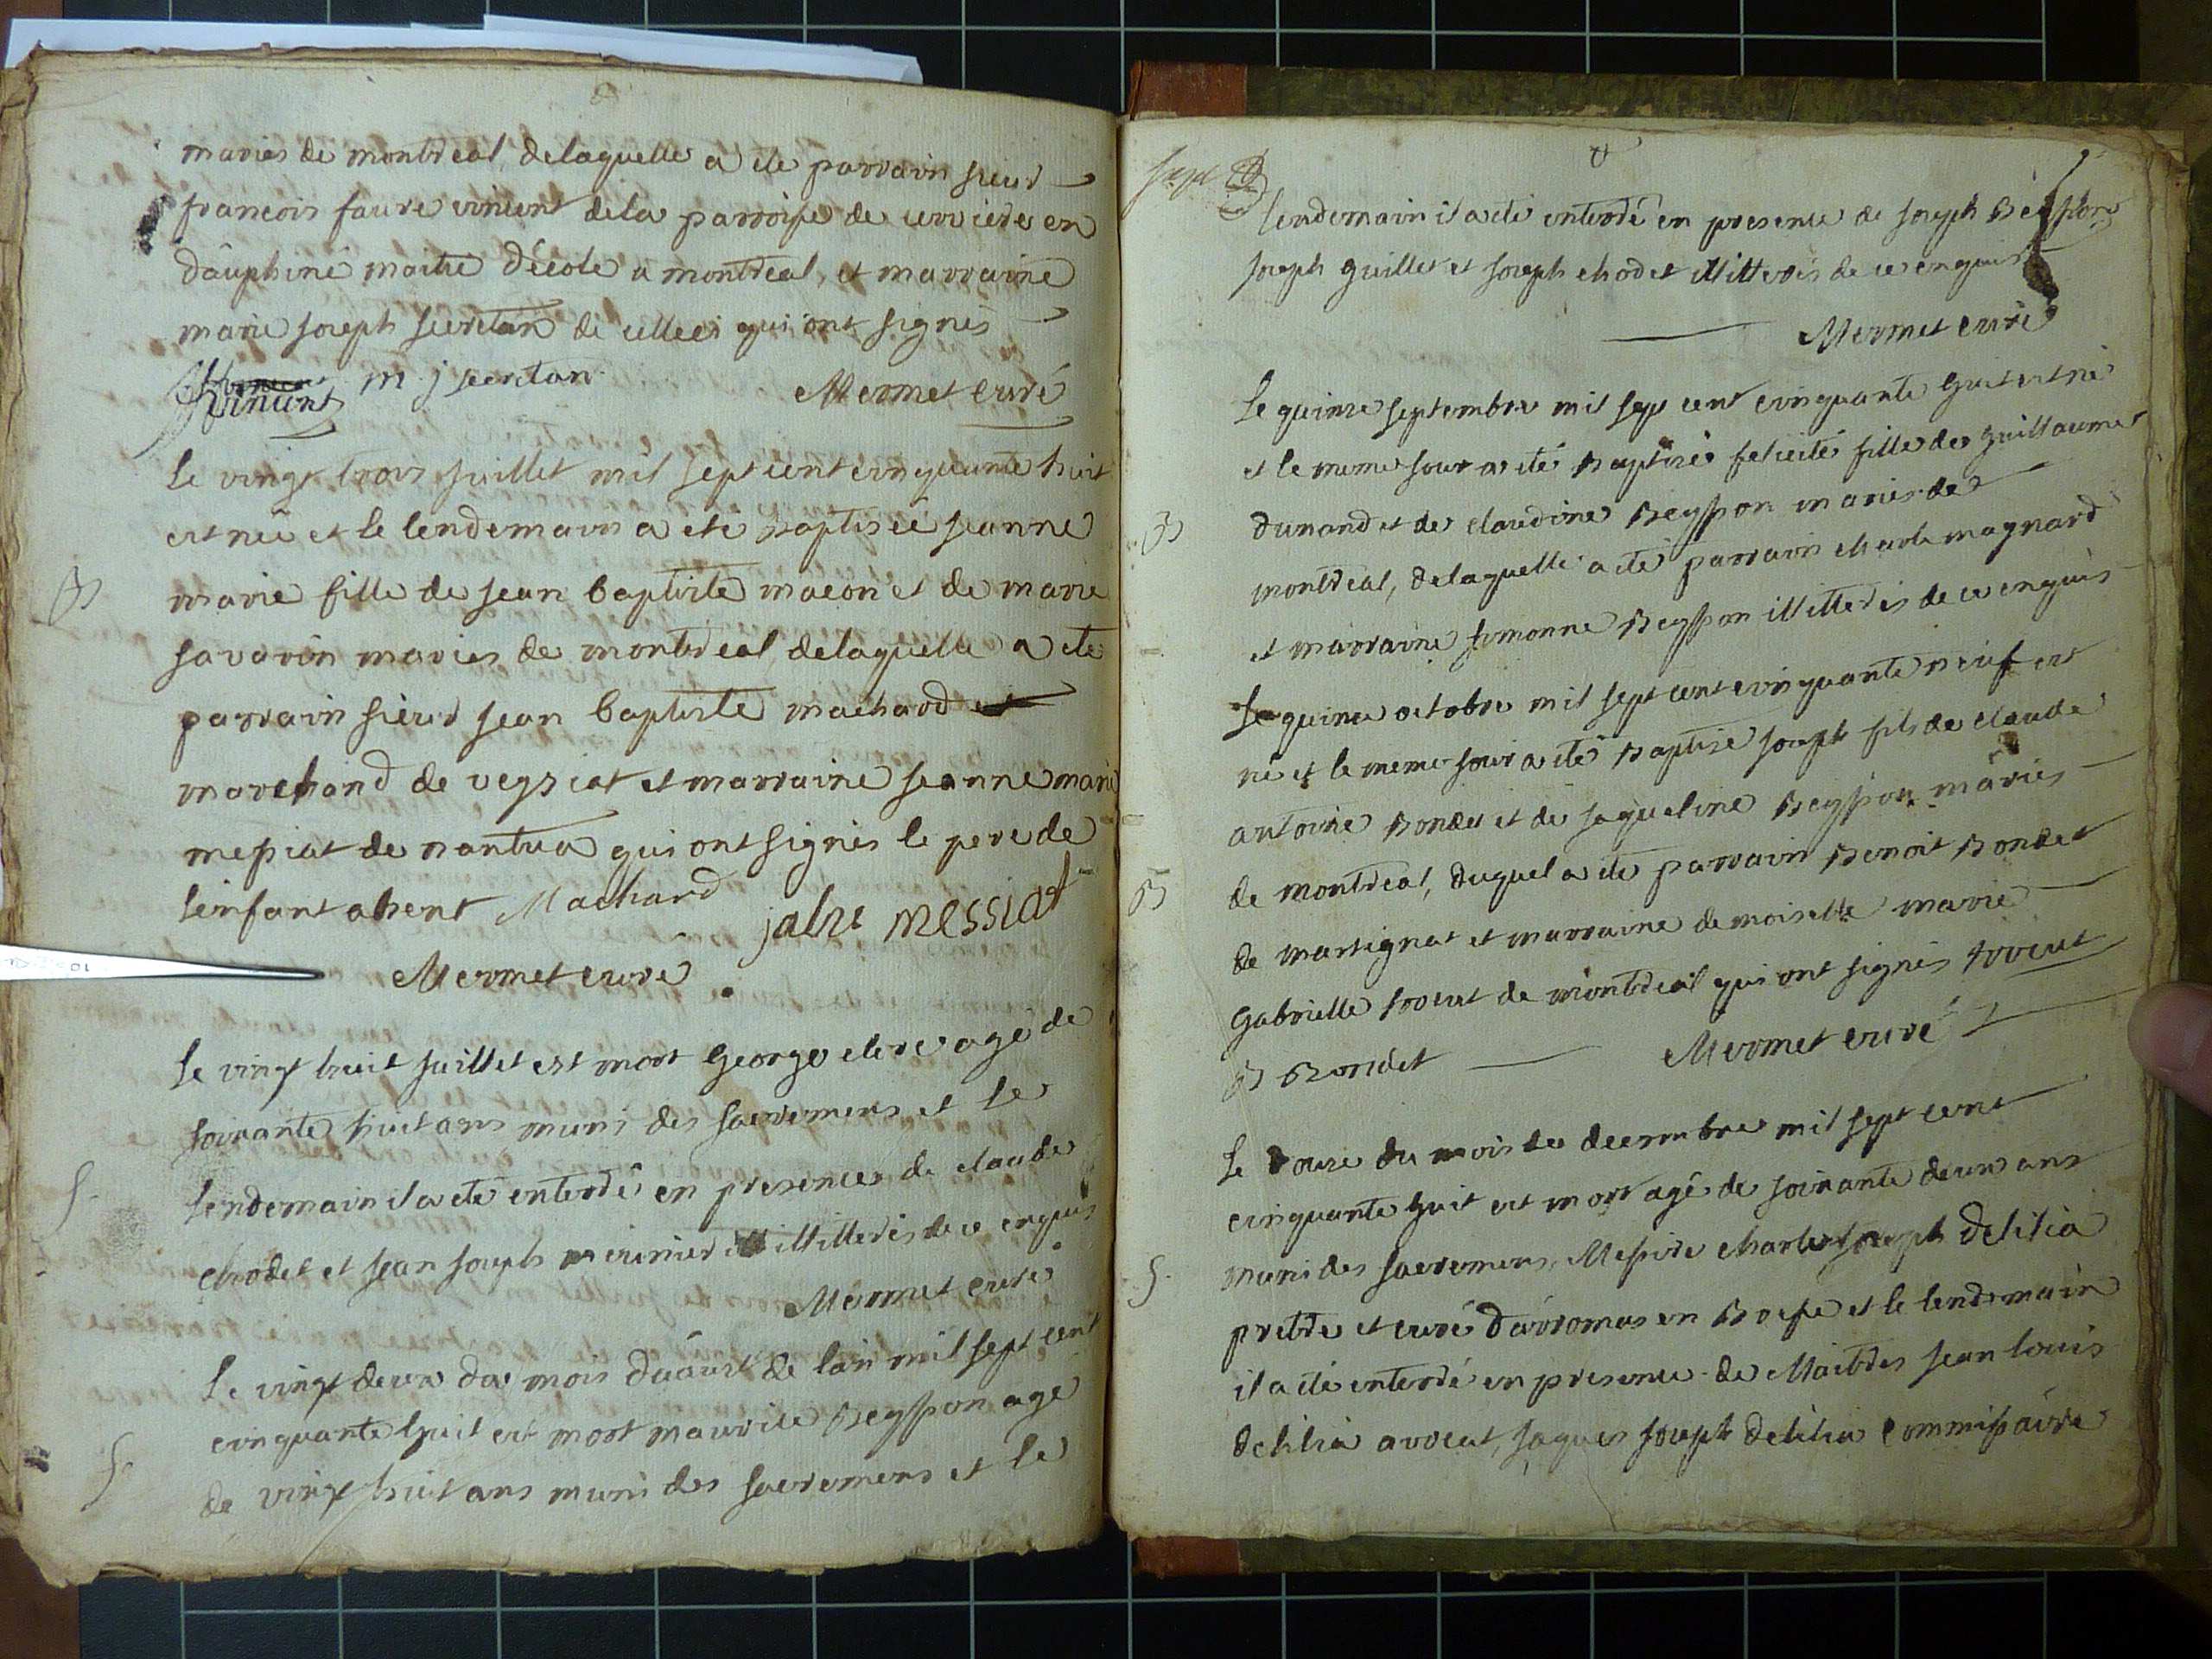 maries de montreal, delaquelle a ete parrain sieur
francois faure vincent dela parroisse de cervieres en
dauphiné maitre d'école a montreal, et marraine
marie joseph secretan de cellecy qui ont signés
vincent m. j secretan Mermet curé
Le vingt trois juillet mil sept cent cinquante huit
est née et le lendemain a eté baptisée jeanne
B marie fille de jean baptiste macon et de marie
savarin maries de montreal, delaquelle a ete
parrain sieur jean baptiste machard
marchand de veyziat et marraine jeanne marie
messiat de nantua qui ont signés le pere de
lenfant absent Machard
messiat
Mermet curé
Le vingt huit juillet est mort George clerc agé de
soixante huit ans muni des sacremens et le
S. lendemain il a eté enterré en presence de claude
chodet et jean joseph illitterés de ce enquis
Mermet curé
Le vingt deux du mois daoust de lan mil sept cent
cinquante huit est mort maurice Beysson agé
S. de vingt huit ans muni des sacremens et le
sept
lendemain il a eté enterré en presence de joseph Beysson
joseph guillet et joseph chodet illitterés de ce enquis
Mermet curé
Le quinze septembre mil sept cent cinquante huit est née
et le meme jour a eté Baptisée felicité fille de guillaume
B Dunand et de claudine Beysson maries de
montreal, delaquelle a eté parrain charle magnard
et marraine simonne Beysson illitterés de ce enquis
Le quinze octobre mil sept cent cinquante neuf est
né et le meme jour a eté Baptisé joseph fils de claude
antoine Bondet et de jaqueline Beysson mariés
B de montreal, duquel a ete parrain Benoit Bondet
de martignat et marraine demoiselle marie
Gabrielle de montreal qui ont signés
B Bondet Mermet curé
Le douze du mois de decembre mil sept cent
cinquante huit est mort agé de soixante deux ans
S. muni des sacremens, Messire charle joseph delilia
pretre et curé d'arromas en Bresse et le lendemain
il a eté enterré en presence de Maitres jean louis
delilia avocat, jaques joseph delilia commissaire